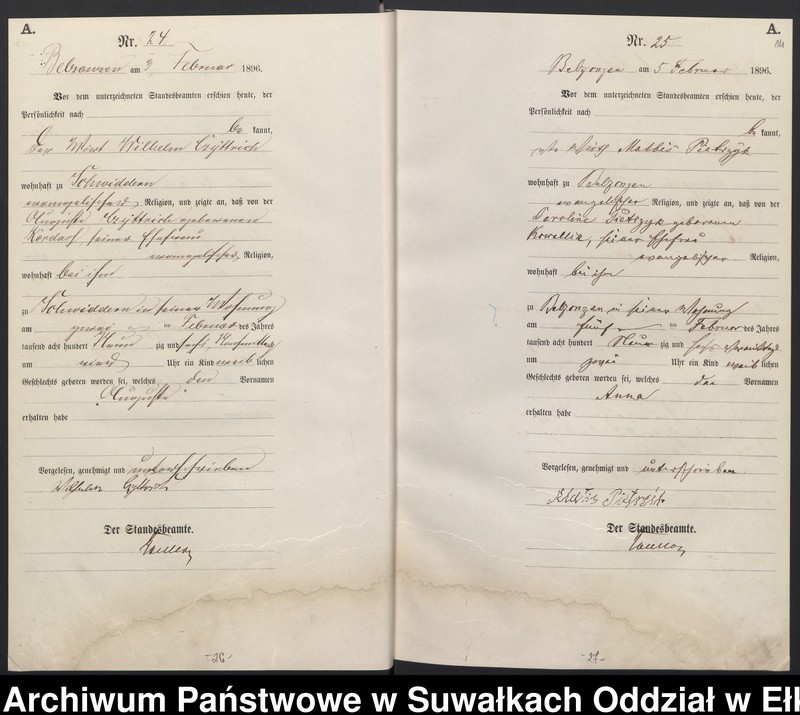 A.
Nr. 24
am 3 Februar 1896.
Vor dem unterzeichneten Standesbeamten erschien heute, der
Persönlichkeit nach
be kannt,
der Wirt Wilhelm Czyttrich
wohnhaft zu Schwiddern
evangelischer Religion, und zeigte an, daß von der
Auguste Czyttrich geborenen
seiner Ehefrau
evangelischer Religion,
wohnhaft bei ihm
zu Schwiddern in seiner Wohnung
am zwei ten Februar des Jahres
tausend acht hundert Neun zig und sechs Nachmittags
um Uhr ein Kind weib lichen
Geschlechts geboren worden sei, welches den Vornamen
Auguste
erhalten habe
Vorgelesen, genehmigt und unterschrieben
Wilhelm Czyttrich
Der Standesbeamte.
-26-
A.
Nr. 25
Belzonzen am 5 Februar 1896.
Vor dem unterzeichneten Standesbeamten erschien heute, der
Persönlichkeit nach
be kannt,
der Wirth Mathis Pietrzyk
wohnhaft zu Belzonzen
evangelischer Religion, und zeigte an, daß von der
Caroline Pietrzyk geborenen
Kowallik, seiner Ehefrau
evangelischer Religion,
wohnhaft bei ihm
zu Belzonzen in seiner Wohnung
am fünf ten Februar des Jahres
tausend acht hundert Neun zig und sechs Vormittags
um zwei Uhr ein Kind weib lichen
Geschlechts geboren worden sei, welches den Vornamen
Anna
erhalten habe
Vorgelesen, genehmigt und unterschrieben
Pietrzik
Der Standesbeamte.
-27-
Archiwum Państwowe w Suwałkach Oddział w Ełk